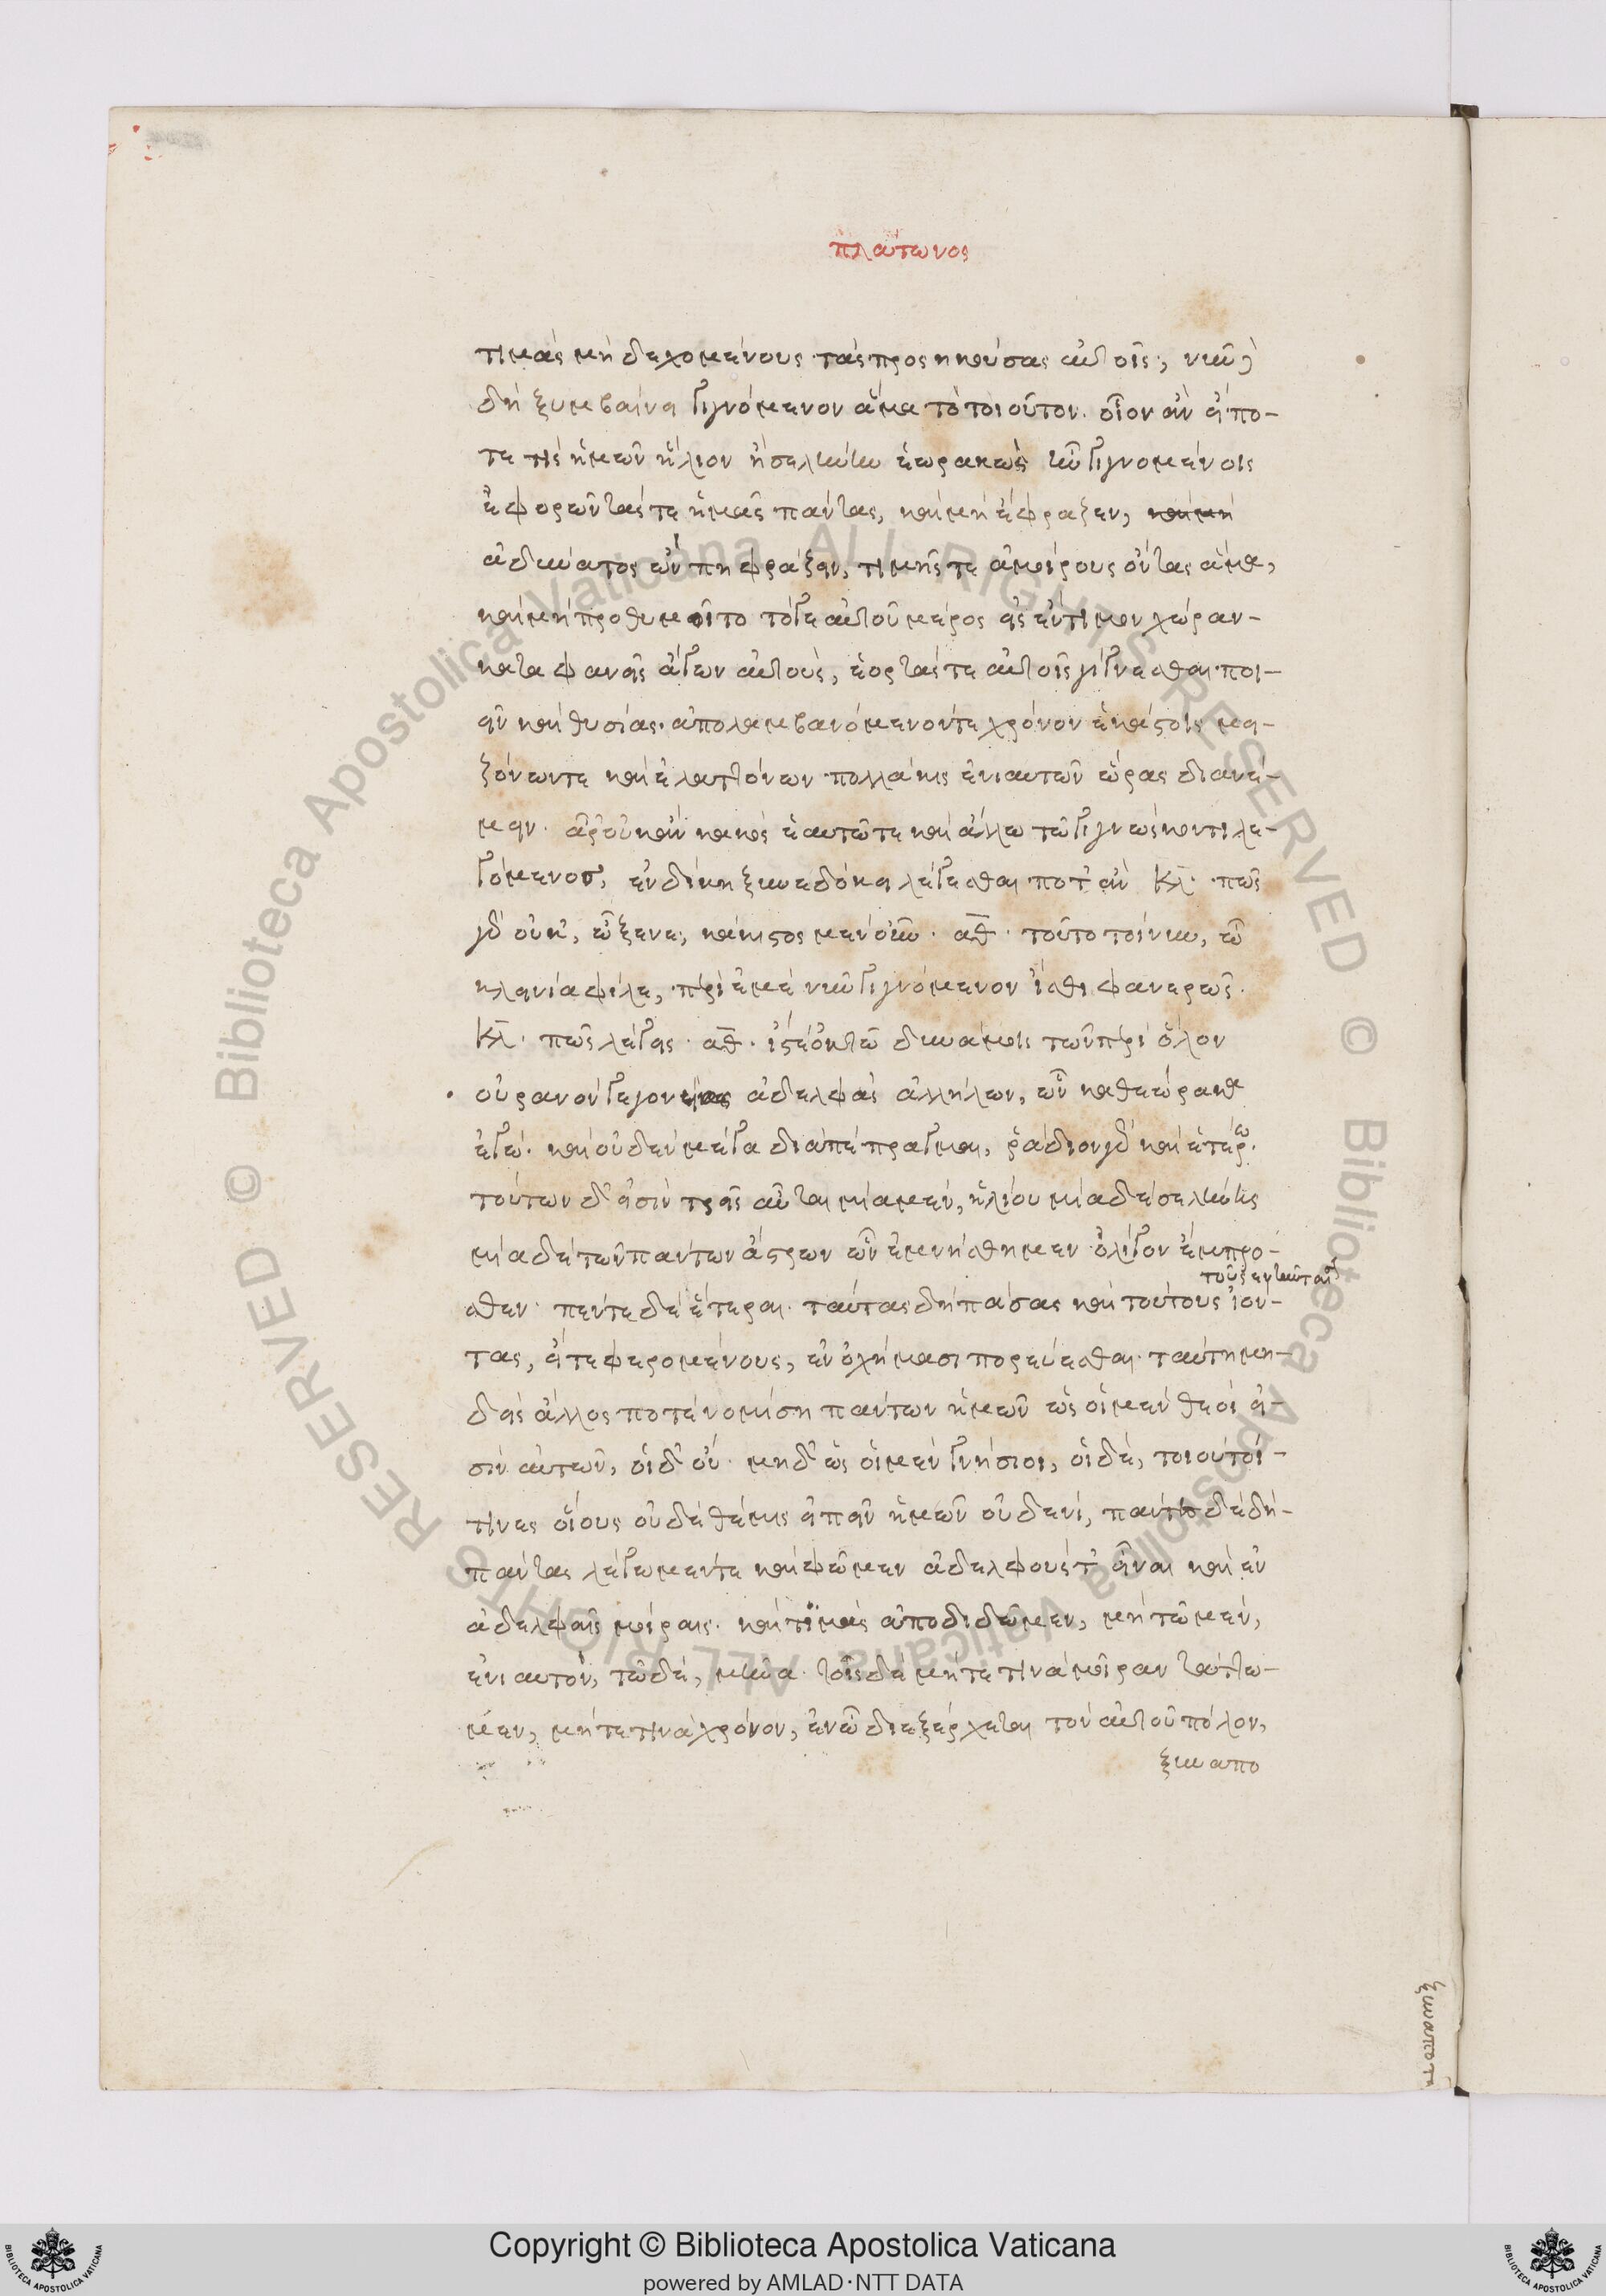 πλάτωνος
τιμὰς μὴ δεχομένους τὰς προσηκούσας αὐτοῖς, νῦν
δὴ ξυμβαίνει γιγνόμενον ἅμα τὸ τοιοῦτον. οἷον ἂν εἴπο-
τέ τις ἡμῶν ἥλιον ἢ σελήνην ἑωρακὼς τῶν γιγνομένοις
ἐφορῶντάς τε ἡμᾶς πάντας, καὶ μὴ ἔφραζεν, καὶ μὴ
ἀδύνατος ὢν πη φράζειν, τιμῆς τε ἀμοίρους ὄντας ἅμα,
καὶ μὴ προθυμοῖτο τό γε αὐτοῦ μέρος εἰς ἔντιμον χώραν-
καταφανεῖς ἄγων αὐτοὺς, ἑορτάς τε αὐτοῖς γίγνεσθαι ποι-
εῖν καὶ θυσίας. ἀπολαμβανόμενόν τε χρόνον ἑκάστοις μει-
ζόνων τε καὶ ἐλαττόνων πολλάκις ἐνιαυτῶν ὥρας διανέ-
μειν. ἆρ' οὐκ ἂν κακὸς ἑαυτῷ τε καὶ ἄλλῳ τῷ γιγνώσκοντι λε-
γόμενος, ἐν δίκῃ ξυνεδόκει λέγεσθαι ποτ' ἄν Κλ. πῶς
γὰρ οὐκ, ὦ ξένε, κάκιστος μὲν οὖν. ἀθ. τοῦτο τοίνυν, ὦ
κλεινία φίλε, περὶ ἐμὲ νῦν γιγνόμενον ἴσθι φανερῶς.
Κλ. πῶς λέγεις. ἀθ. ἴστε ὀκτὼ δυνάμεις τῶν περὶ ὅλον
οὐρανὸν γεγονυίας ἀδελφὰς ἀλλήλων, ὧν καθεώρακα
ἐγώ. καὶ οὐδὲν μέγα διαπέπραγμαι, ῥάδιον γὰρ καὶ ἑτέρῳ.
τούτων δ' εἰσὶν τρεῖς αὗται μία μὲν, ἡλίου μία δὲ σελήνης
μία δὲ τῶν πάντων ἄστρων ὧν ἐμνήσθημεν ὀλίγον ἔμπρο-
σθεν. πέντε δὲ ἕτεραι. ταύτας δὴ πάσας καὶ τούτους ἰόν-
τας, εἴτε φερομένους, ἐν ὀχήμασι πορεύεσθαι. ταύτῃ μη-
δεὶς ἄλλος ποτὲ νομίσῃ πάντων ἡμῶν ὡς οἱ μὲν θεοί εἰ-
σιν αὐτῶν, οἱ δ' οὔ. μηδ' ὡς οἱ μὲν γνήσιοι, οἱ δὲ, τοιοῦτοί-
τινες οἵους οὐδὲ θέμις εἰπεῖν ἡμῶν οὐδενὶ, πάντες δὲ δὴ
πάντας λέγωμέν τε καὶ φῶμεν ἀδελφούς τ' εἶναι καὶ ἐν
ἀδελφαῖς μοίραις. καὶ τιμὰς ἀποδιδῶμεν, μὴ τῷ μὲν,
ἐνιαυτὸν, τῷ δὲ, μῆνα. τοῖς δὲ μήτε τινὰ μοῖραν τάττω-
μεν, μήτε τινὰ χρόνον, ἐν ᾧ διεξέρχεται τὸν αὐτοῦ πόλον,
ξυναπο
ξυναποτε
Copyright © Biblioteca Apostolica Vaticana
powered by AMLAD·NTT DATA